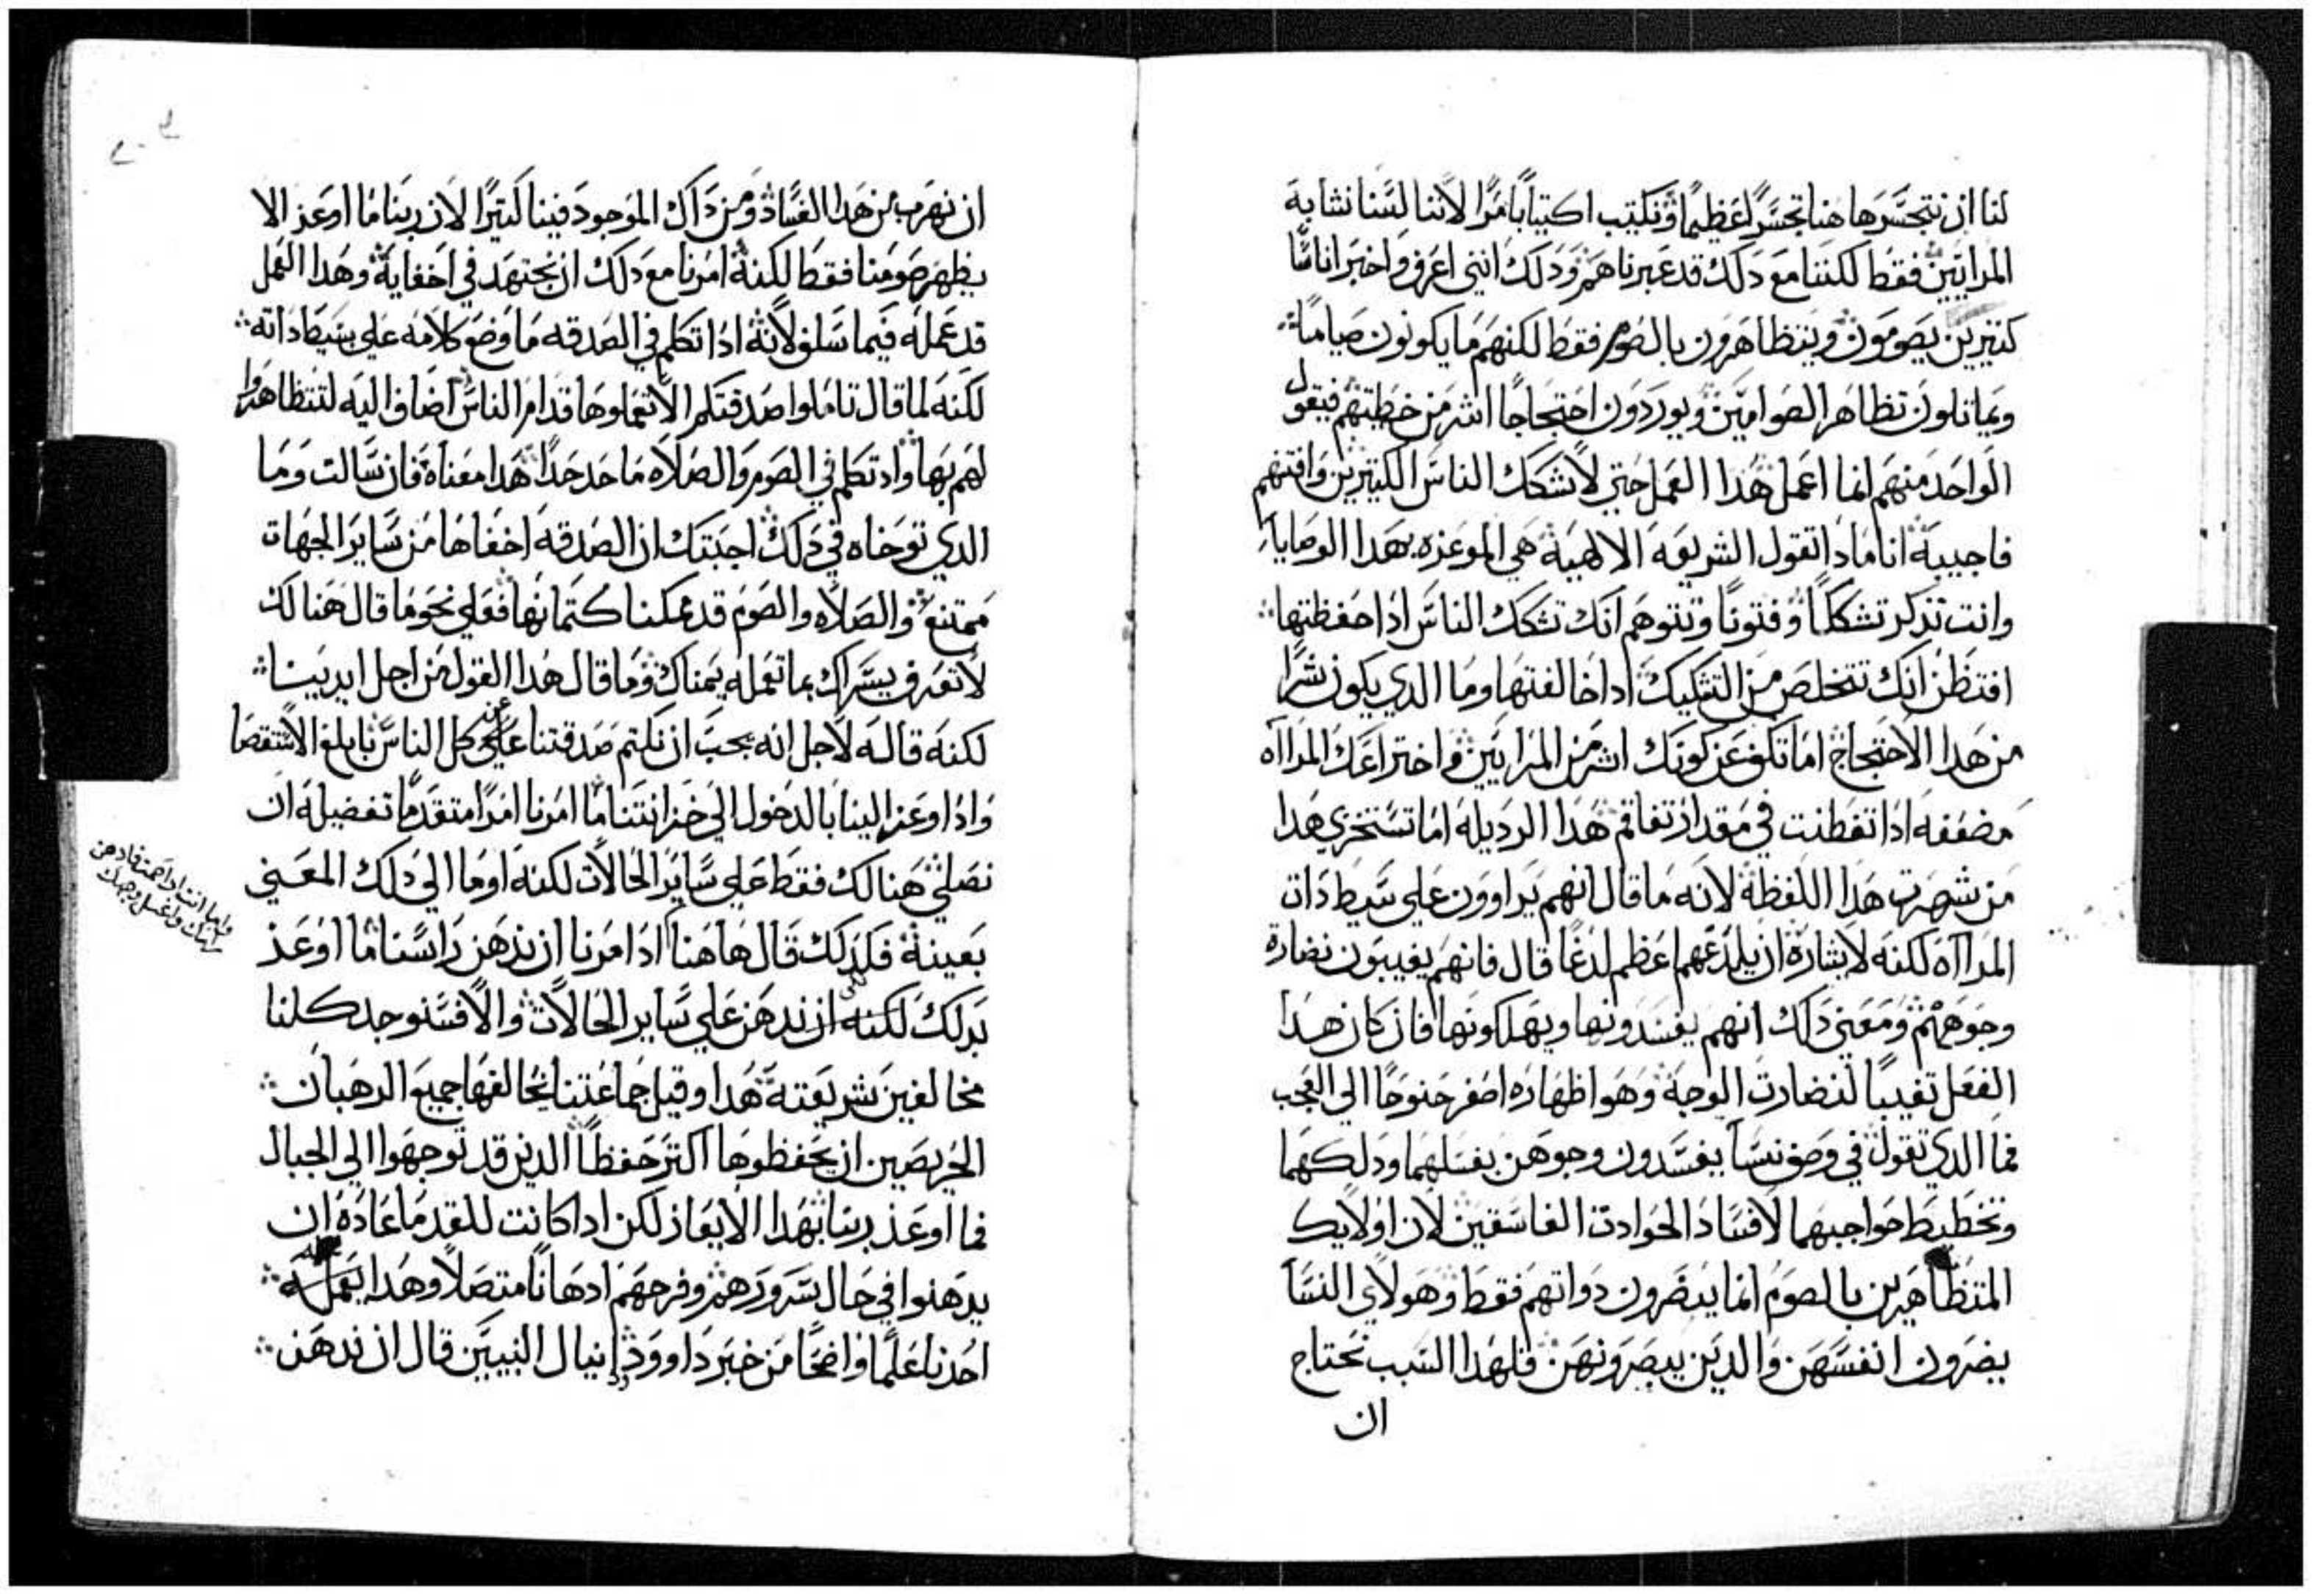 لنا ان نتحسرها هنا تحسرًا عظيمًا ونكتيب اكتيابًا مرًا لاننا لسنا نشابه
المرايين فقط لكننا مع دلك قد عبرناهم ودلك انني اعرف واخبر اناسًا
كتيرين يصومون ويتظاهرون بالصوم فقط لكنهم ما يكونون صيامًا
ويماتلون تظاهر الصوامين ويوردون احتجاجًا اشر من خطيتهم فيقول
الواحد منهم انما اعمل هدا العمل حتي لا اشكك الناس الكتيرين وافتنهم
فاجيبه انا مادا تقول الشريعه الالهيه هي الموعزه بهدا الوصايا
وانت تدكر تشككًا وفتونًا وتتوهم انك تشكك الناس ادا حفظتها
افتظن انك تتخلص من التشكيك ادا خالفتها وما الدي يكون شرًا
من هدا الاحتجاج اما تكف عن كونك اشر من المرايين واختراعك المرااه
مضعفه ادا تفطنت في مقدار تفاقم هدا الرديله اما تستخزي هدا
من شهرت هدا اللفظة لانه ما قال انهم يراوون علي بسيط دات
المرااه لكنه لايتاره ان يلدغهما عظم لدغًا قال فانهم يغيبون نضارة
وجوههم ومعني دلك انهم يفسدونها ويهلكونها فان كان هدا
الفعل تغييبًا لنضارت الوجه وهو اظهاره اصفر جنوحًا الي العجب
فما الدي تقول في وصف نسا يفسدون وجوهن بغسلهما ودلكهما
وتخطيط حواجبهما لافساد الحوادت الفاسقين لان اولايك
المتظاهرين بالصوم انما يضرون دواتهم فقط وهولاي النسا
يضرون انفسهن والدين يبصرونهن فلهدا السبب نحتاج
ان
ان نهرب من هدا الفساد ومن داك الموجود فينا كتيرًا لان ربنا ما اوعز الا
يظهر صومنا فقط لكنه امرنا مع دلك ان نجتهد في اخفايه وهدا العمل
قد عمله فيما سلف لانه ادا تكلم في الصدقه ما وضع كلامه علي بسيط داته
لكنه لما قال تاملوا صدقتكم الا تعملوها قدام الناس اضاف اليه لتتظاهروا
لهم بها واد تكلم في الصوم والصلاه ما حد حدًا هدا معناه فان سالت وما
الدي توخاه في دلك اجبتك ان الصدقه اخفاها من ساير الجهات
ممتنع والصلاه والصوم قد يمكننا كتمانها فعلي نحو ما قال هنالك
لا تعرف يسراك بما تعمله يمناك وما قال هدا القول من اجل ايديينا
لكنه قاله لاجل انه يجب ان نكتم صدقتنا عن كل الناس بابلغ الاستقصا
وادا اوعز الينا بالدخول الي خزانتنا ما امرنا امرًا متقدمًا تفضيله ان
نصلي هنالك فقط علي ساير الحالات لكنه اوما الي دلك المعني
بعينه فكدلك قال هاهنا ادا امرنا ان ندهن راسنا ما اوعز
بدلك لكنه ان ندهن علي ساير الحالات والا فسنوجد كلنا
مخالفين شريعته هدا وقيل جماعتنا يخالفها جميع الرهبان
الحريصين ان يحفظوها اكتر حفظًا الدين قد توجهوا الي الجبال
فما اوعز ربنا بهدا الايعاز لكن ادا كانت للقدما عاده ان
يدهنوا في حال سرورهم وفرحهم ادهانًا متصلًا وهدا يعمله
احدنا علمًا واضحًا من خبر داوود ودانيال النبيين قال ان ندهن
واما انت ادا صمت فادهن
راسك واغسل وجهك